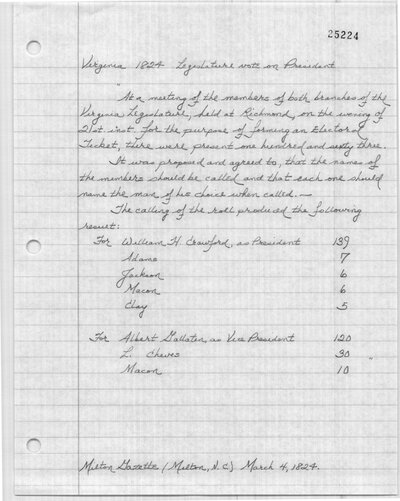 25224
Virginia 1824 Legislature vote on President
"At a meeting of the members of both branches of the
Virginia Legislature, held at Richmond, on the evening of
21st inst. for the purpose of forming an Electoral
Ticket, there were present one hundred and sixty three.
It was proposed and agreed to, that the names of
the members should be called and that each one should
name the man of his choice when called. —
The calling of the roll produced the following
result:
For William H. Crawford, as President 139
Adams 7
Jackson 6
Macon 6
Clay 5
For Albert Gallatin, as Vice President 120
L. Cheves 30 "
Macon 10
Milton Gazette (Milton, N.C.) March 4, 1824.